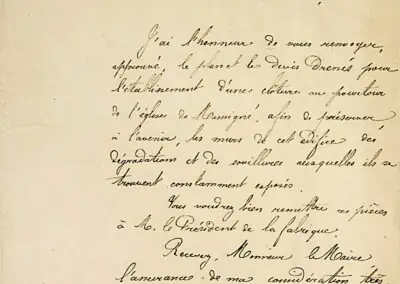 J'ai l'honneur de vous renvoyer,
approuvé, le plan et le devis dressés pour
l'établissement d'une clôture au pourtour
de l'église de Momigné, afin de préserver
à l'avenir, les murs de cet édifice des
dégradations et des souillures auxquelles ils se
trouvent constamment exposés.
Vous voudrez bien remettre ces pièces
à M. le Président de la fabrique.
Recevez, Monsieur le Maire
l'assurance de ma considération très